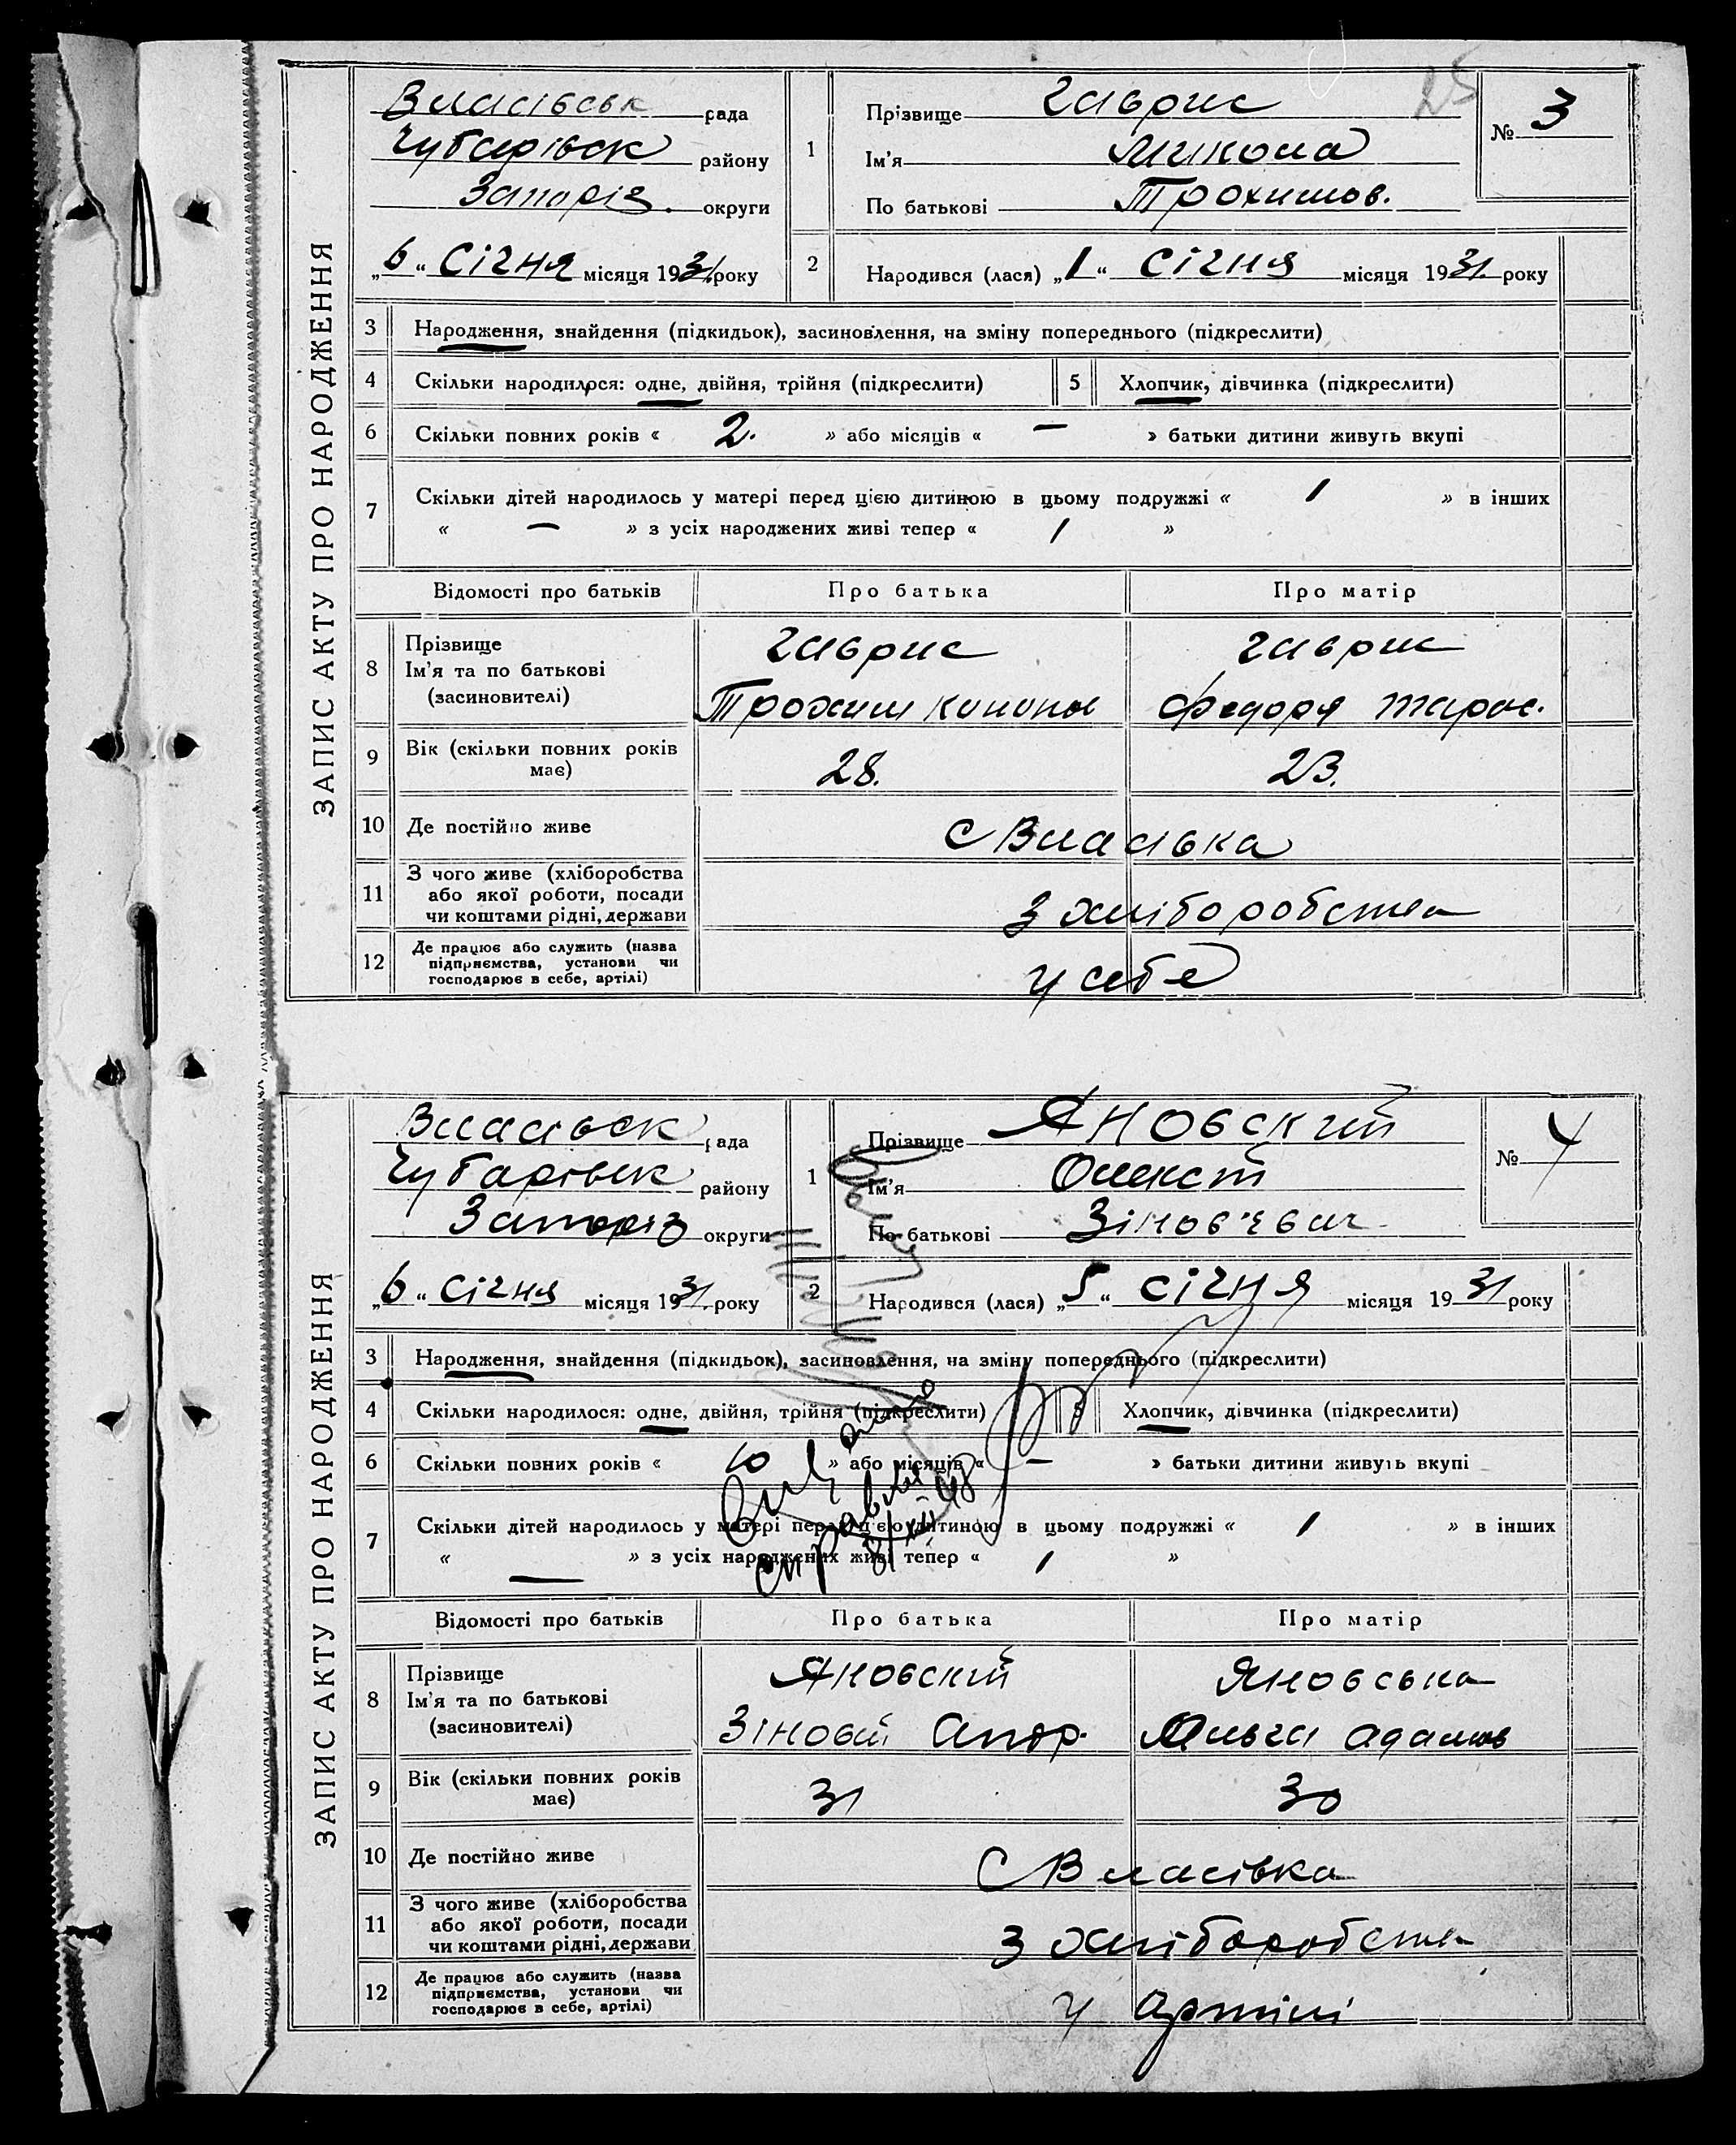 25
ЗАПИС АКТУ ПРО НАРОДЖЕННЯ
Власівськ рада
Чубарівськ району
Запоріз. округи
„6“ Січня місяця 1931 року
1 Прізвище Гаврис
Ім'я Микола
По батькові Трохимов.
№ 3
2 Народився (лася) „1“ Січня місяця 1931 року
3 Народження, знайдення (підкидьок), засиновлення, на зміну попереднього (підкреслити)
4 Скільки народилося: одне, двійня, трійня (підкреслити) 5 Хлопчик, дівчинка (підкреслити)
6 Скільки повних років « 2. » або місяців « — » батьки дитини живуть вкупі
7 Скільки дітей народилось у матері перед цією дитиною в цьому подружжі « 1 » в інших
« — » з усіх народжених живі тепер « 1 »
Відомості про батьків Про батька Про матір
8 Прізвище
Ім'я та по батькові
(засиновителі)
Гаврис Гаврис
Трохим Конони Федора Тарас.
9 Вік (скільки повних років
має) 28. 23.
10 Де постійно живе С Власівка
11 З чого живе (хліборобства
або якої роботи, посади
чи коштами рідні, держави З хліборобства
12 Де працює або служить (назва
підприємства, установи чи
господарює в себе, артілі) у себе
ЗАПИС АКТУ ПРО НАРОДЖЕННЯ
Власівск рада
Чубарівск району
Запоріз округи
„6“ Січня місяця 1931. року
1 Прізвище Яновский
Ім'я Олекст
По батькові Зінов'євич
№ 4
2 Народився (лася) „5“ Січня місяця 1931 року
3 Народження, знайдення (підкидьок), засиновлення, на зміну попереднього (підкреслити)
4 Скільки народилося: одне, двійня, трійня (підкреслити) 5 Хлопчик, дівчинка (підкреслити)
6 Скільки повних років « 10 » або місяців « — » батьки дитини живуть вкупі
7 Скільки дітей народилось у матері перед цією дитиною в цьому подружжі « 1 » в інших
« — » з усіх народжених живі тепер « 1 »
Відомості про батьків Про батька Про матір
8 Прізвище
Ім'я та по батькові
(засиновителі)
Яновскій Яновська
Зіновій Ольга Адамов
9 Вік (скільки повних років
має) 31 30
10 Де постійно живе С Власівка
11 З чого живе (хліборобства
або якої роботи, посади
чи коштами рідні, держави З хліборобства
12 Де працює або служить (назва
підприємства, установи чи
господарює в себе, артілі) у артілі